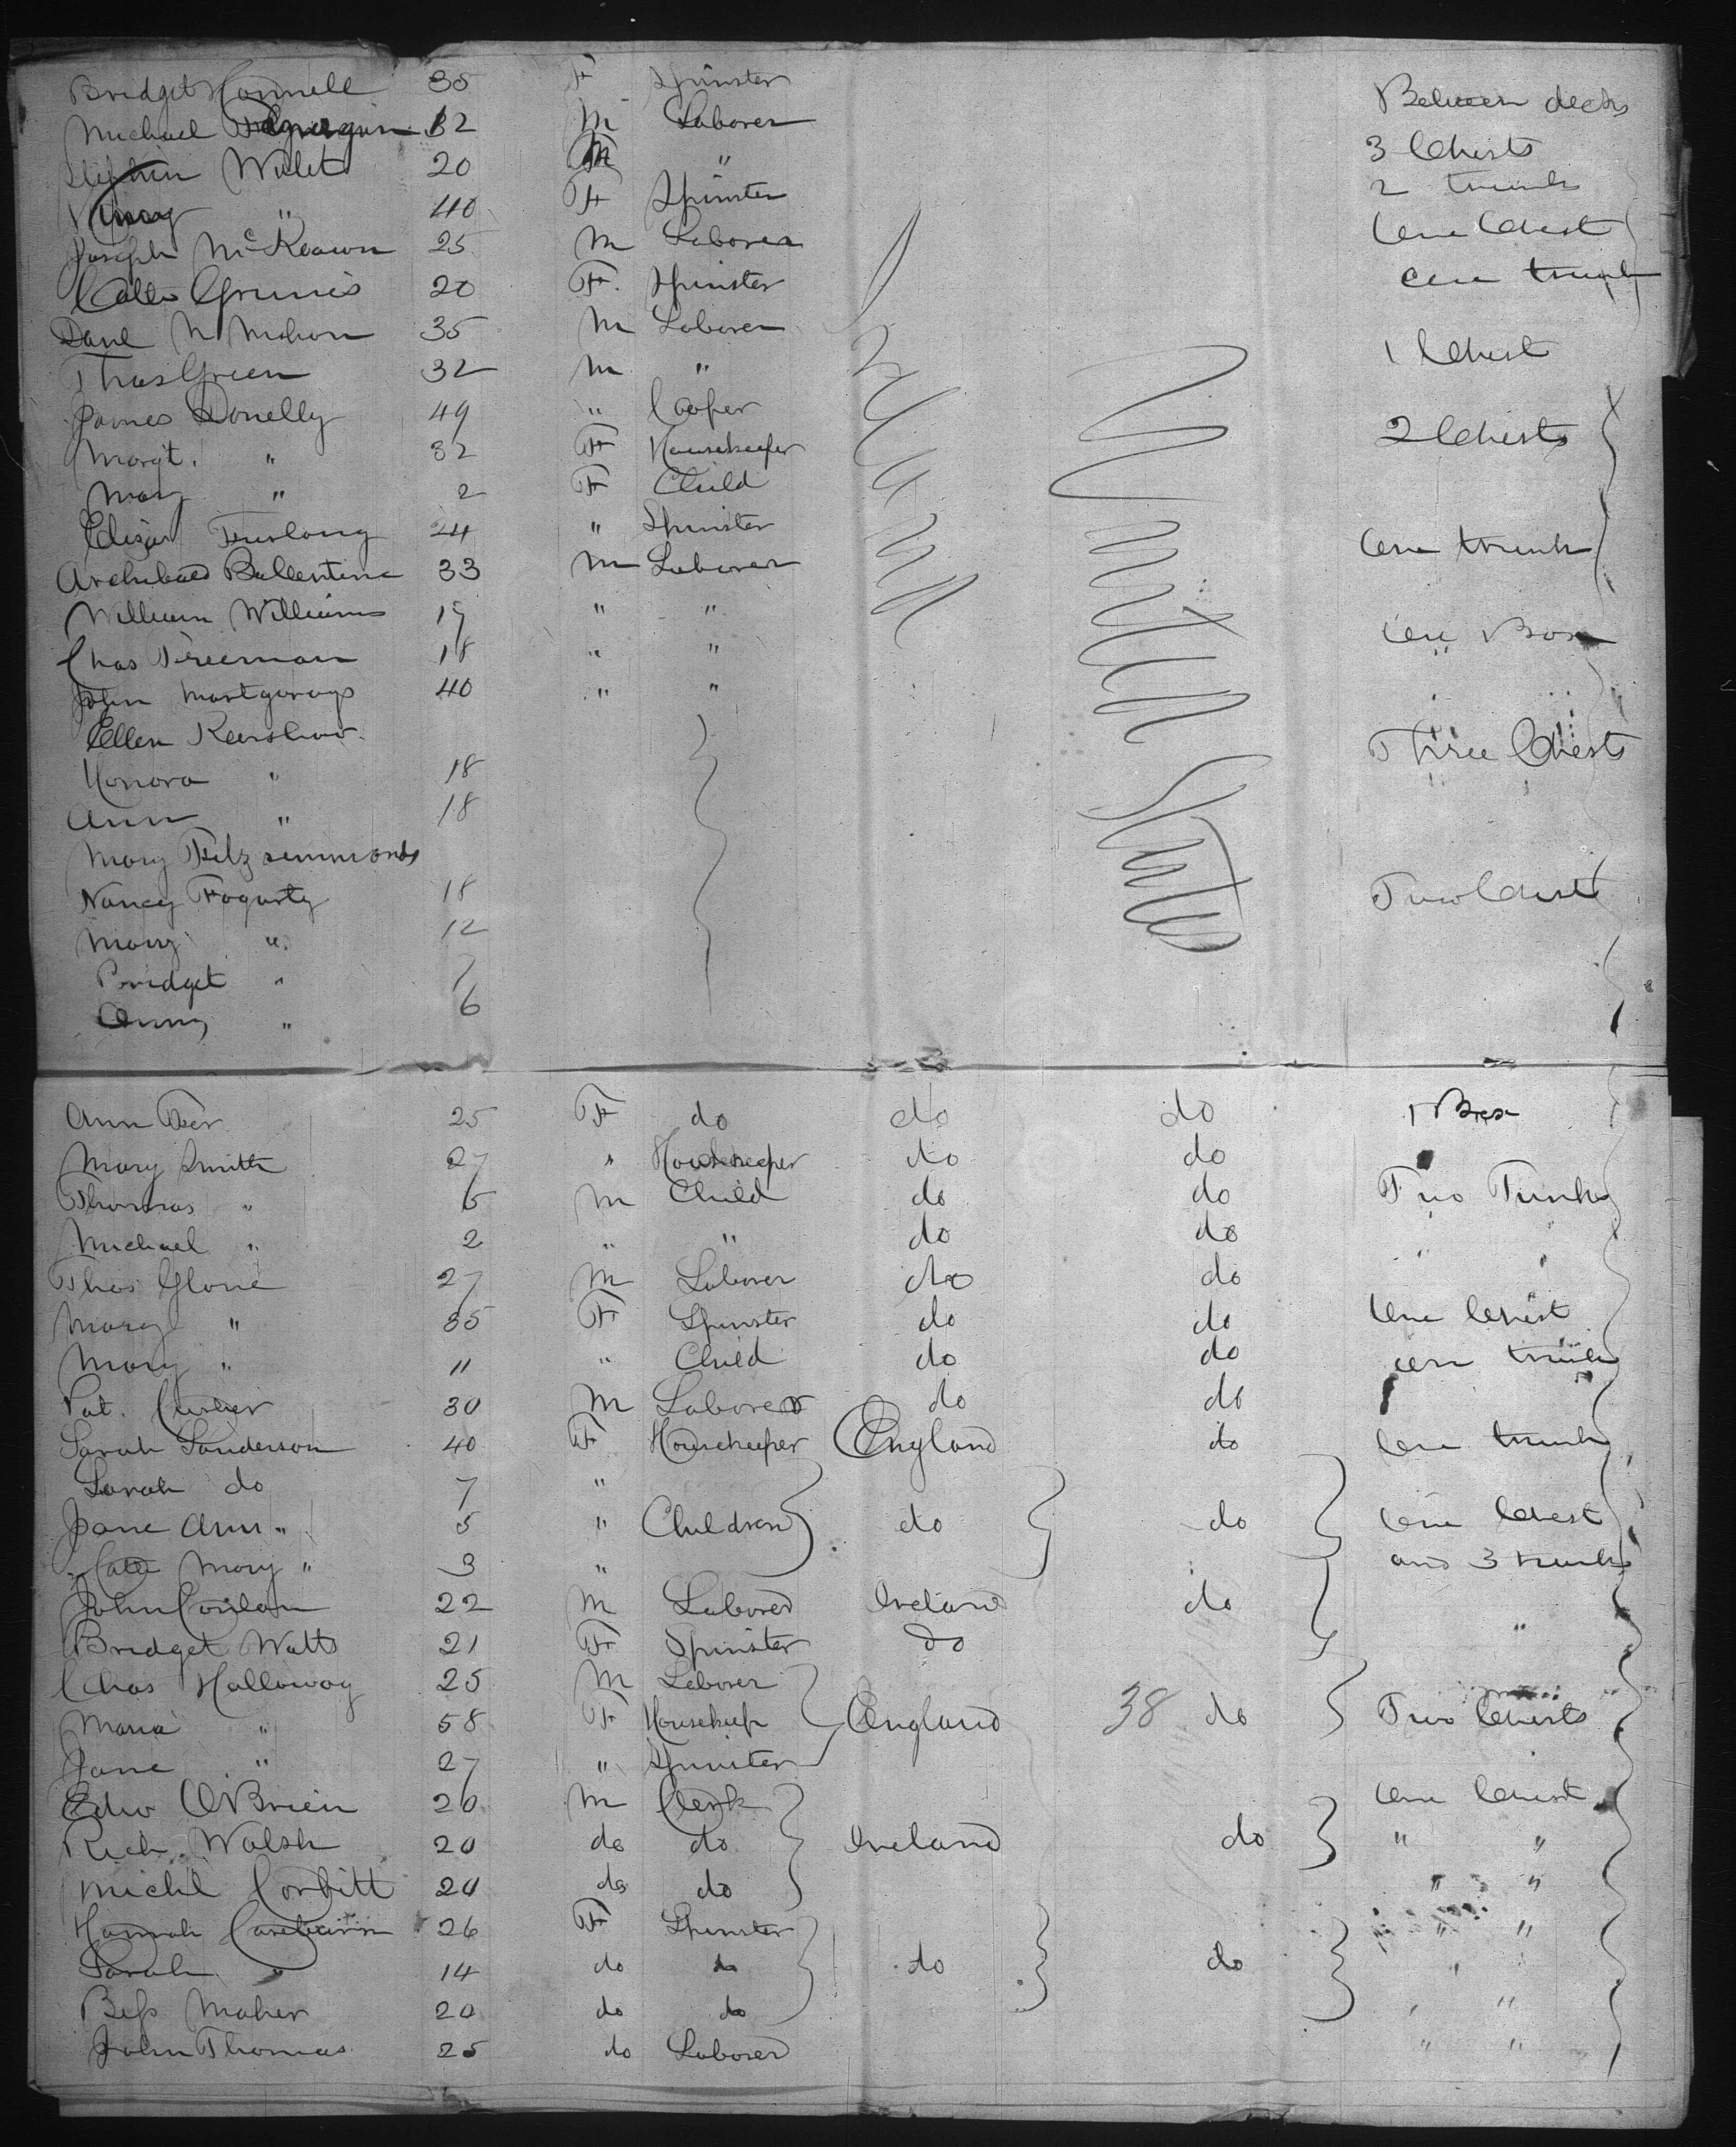 Bridget Connell 35 F Spinster Between decks
Michael 32 M Laborer
Stephen 20 M " 3 Chests
" 40 F Spinster 2 trunks
Joseph McKeown 25 M Laborer One Chest
20 F. Spinster One trunk
Danl McMahon 35 M Laborer
Thos Green 32 M " 1 Chest
James Donelly 49 " Cooper
Margt. " 32 F Housekeeper 2 Chests
Mary " 2 F Child
Eliza Furlong 24 " Spinster One trunk
Archibald Ballentine 33 M Laborer
William Williams 19 " " One Box
Chas Freeman 18 " " " "
John 40 " "
Ireland
United States
Ellen Kershaw Three Chests
Honora " 18
Ann " 18
Mary Fitzsimmonds
Nancy Fogarty 18 Two Chest
Mary " 12
Bridget " 7
Anny " 6
Ann 25 F do do do 1 Box
Mary Smith 27 " Housekeeper do do
Thomas " 5 M Child do do Two Trunks
Michael " 2 " " do do " "
Thos Glone 27 M Laborer do do
Mary " 35 F Spinster do do One Chest
Mary " 11 " Child do do one trunk
Pat. 30 M Laborer do do
Sarah Sanderson 40 F Housekeeper England do One trunk
Sarah do 7 "
Jane Ann " 5 " Children do do One Chest
Mary " 3 " and 3 trunks
John Conlan 22 M Laborer Ireland do
Bridget Watts 21 F Spinster do "
Chas Halloway 25 M Laborer
Maria " 58 F Housekeep England 38 do Two Chests
Jane " 27 " Spinster
Edw O'Brien 20 M Clerk One Chest
Rich. Walsh 20 do do Ireland do " "
Michl Corbitt 20 do do " "
Hannah 26 F Spinster " "
Sarah " 14 do do do do "
Bess Maher 20 do do " "
John Thomas 25 do Laborer " "